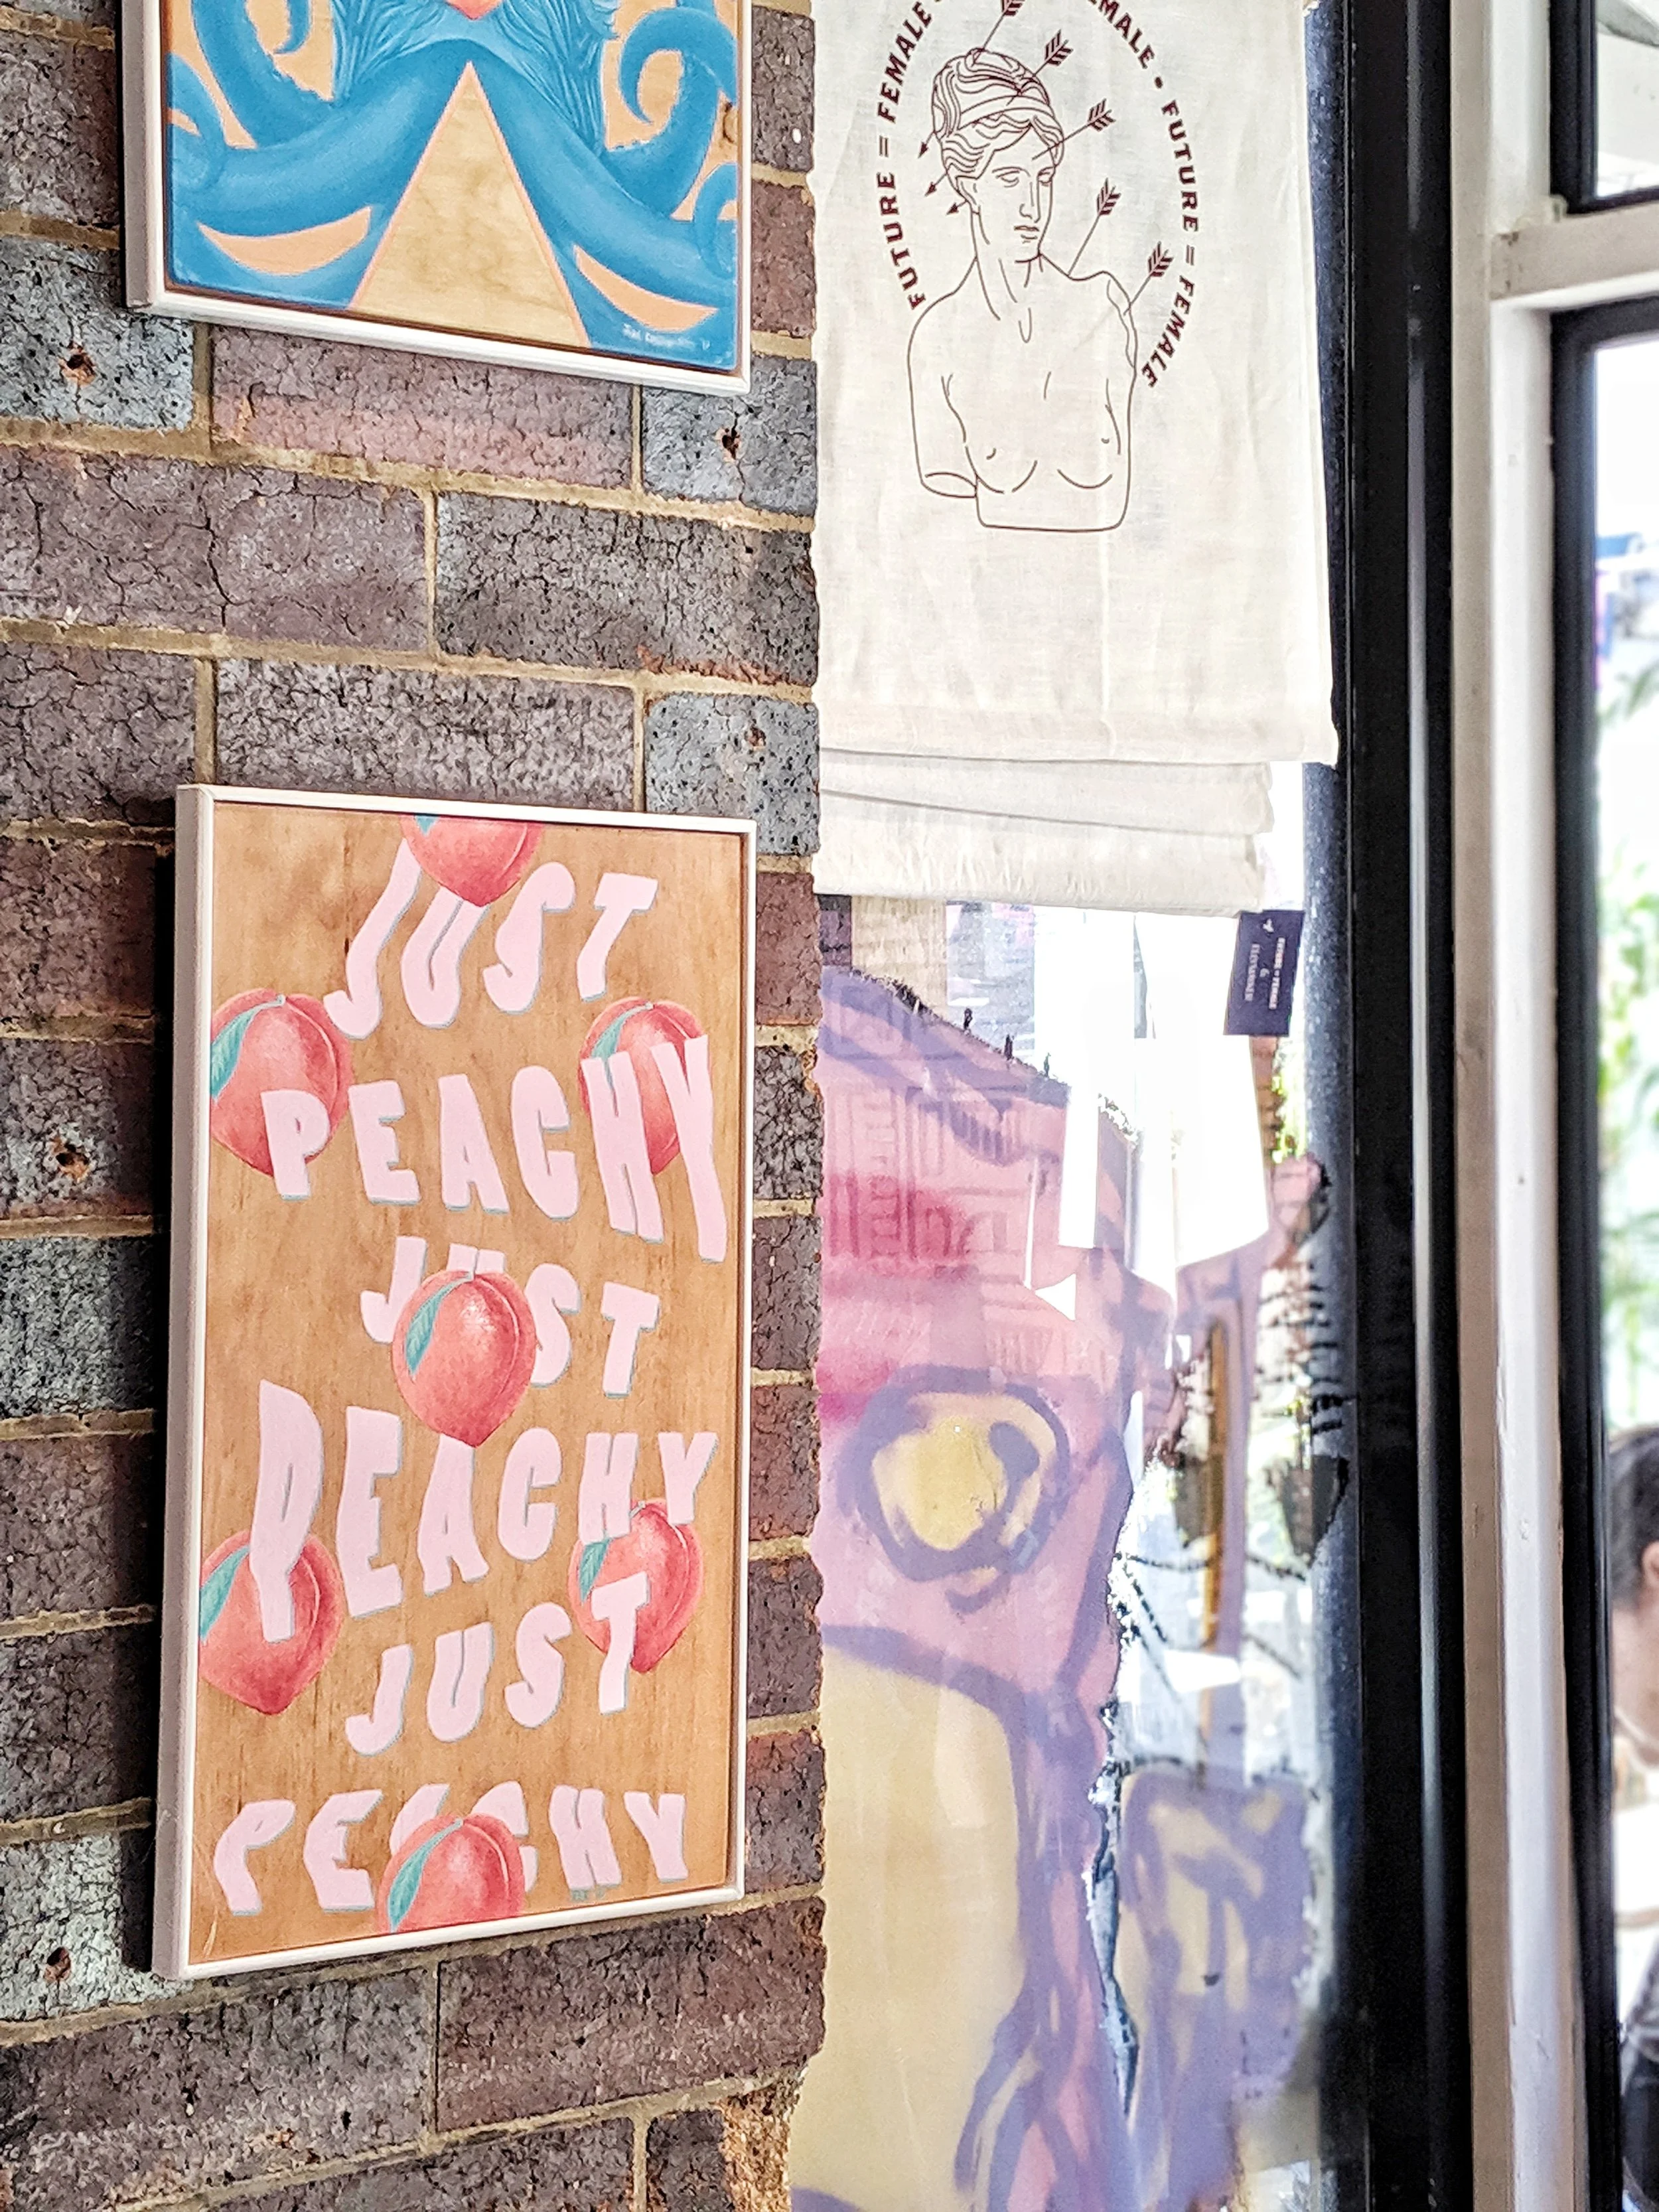 FUTURE = FEMALE
FEMALE • FUTURE = FEMALE
JUST
PEACHY
JUST
PEACHY
JUST
PEACHY
FUTURE = FEMALE
&